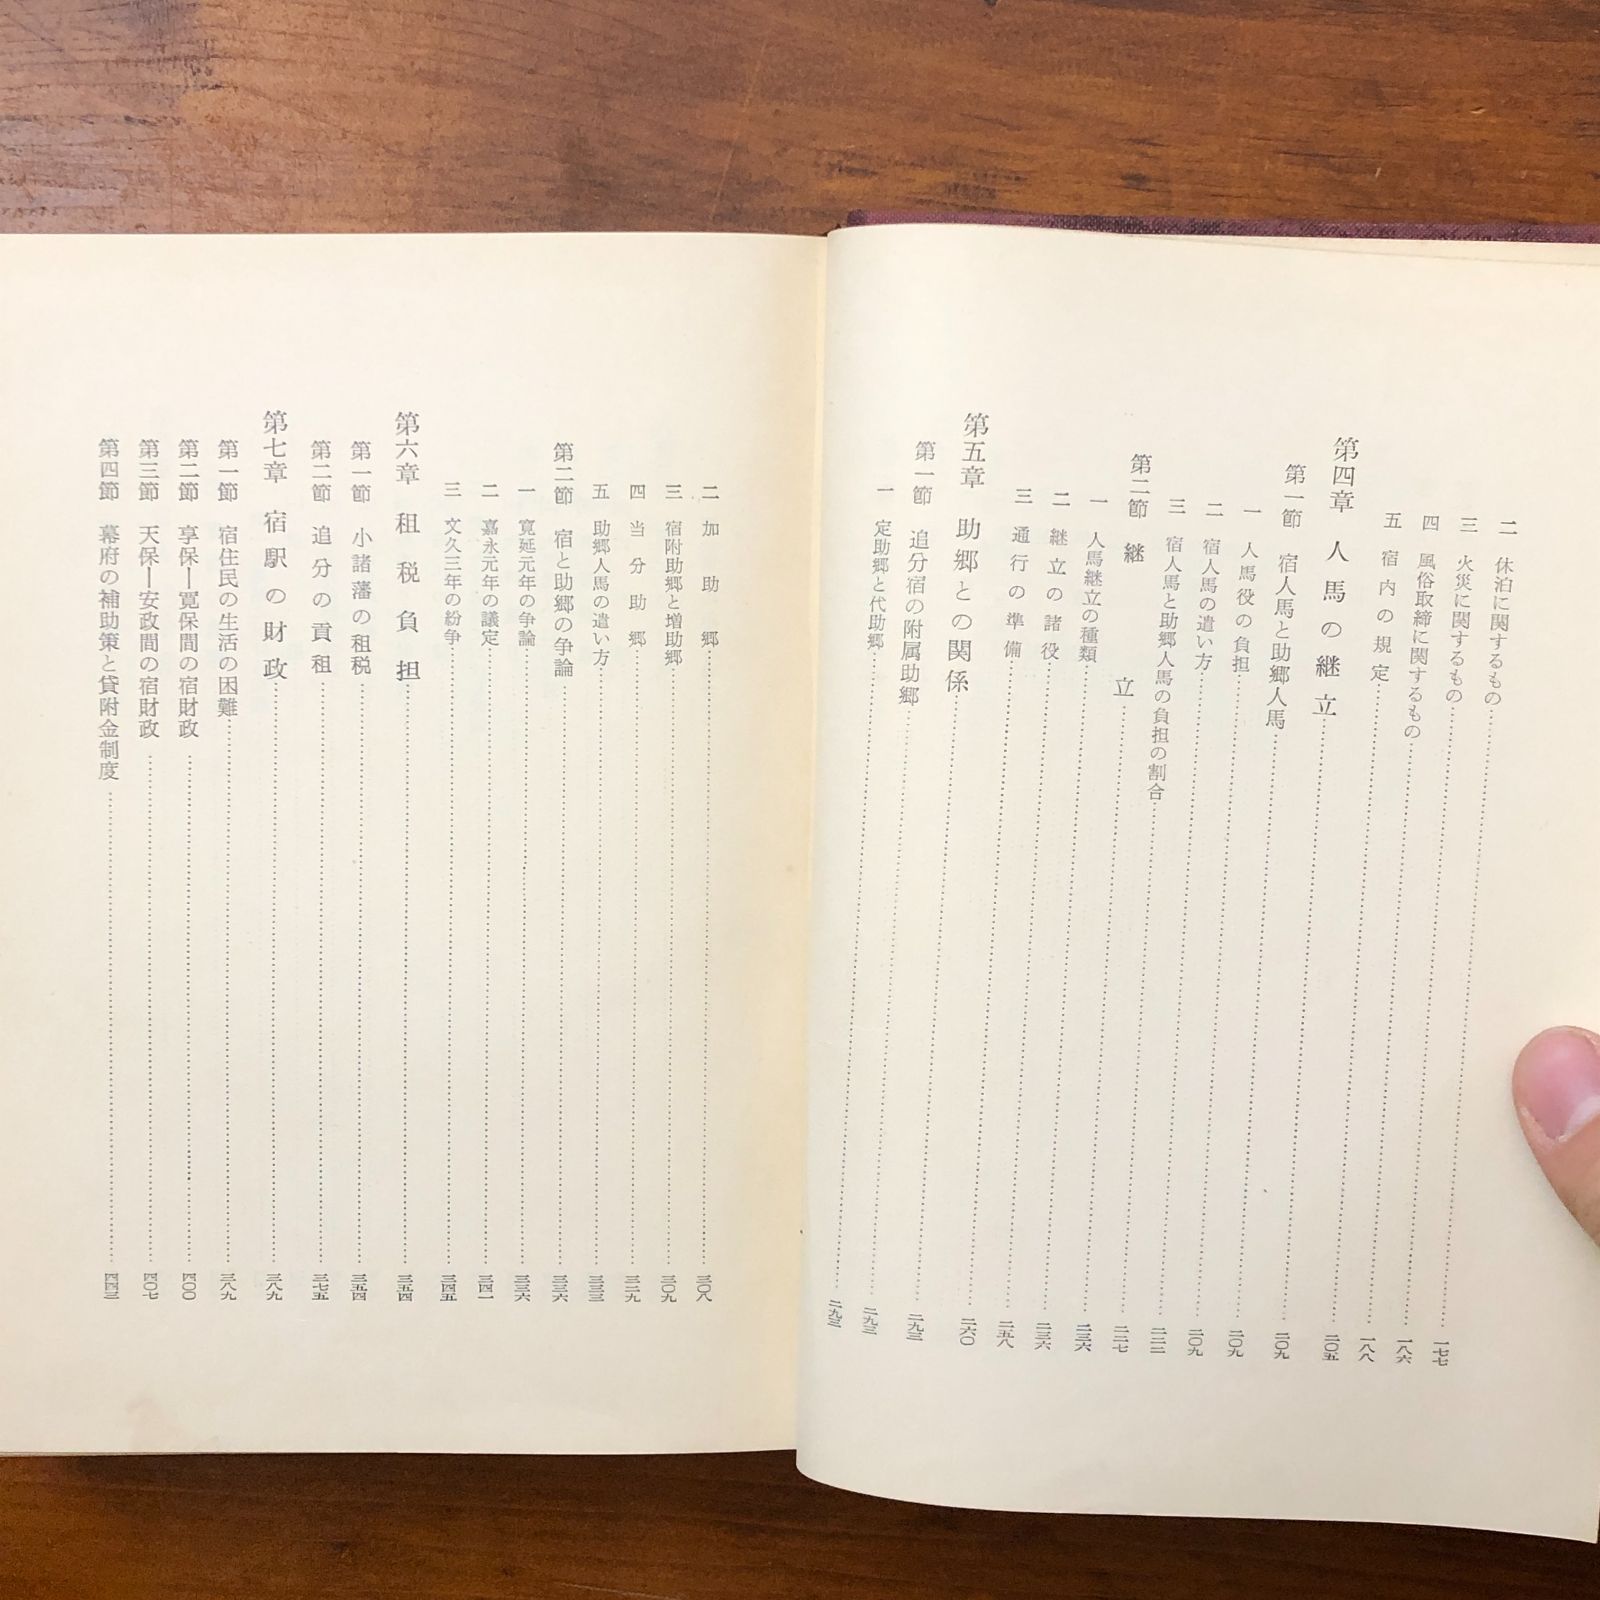 二 休泊に関するもの……一七七
三 火災に関するもの……一八六
四 風俗取締に関するもの……一八八
五 宿内の規定……二〇五
第四章 人馬の継立……二〇九
第一節 宿人馬と助郷人馬……二〇九
一 人馬役の負担……二〇九
二 宿人馬の遣い方……二二二
三 宿人馬と助郷人馬の負担の割合……二二七
第二節 継立……二三六
一 人馬継立の種類……二三六
二 継立の諸役……二五八
三 通行の準備……二六〇
第五章 助郷との関係……二九三
第一節 追分宿の附属助郷……二九三
一 定助郷と代助郷……二九三
二 加助郷……三〇八
三 宿附助郷と増助郷……三〇九
四 当分助郷……三二九
五 助郷人馬の遣い方……三三三
第二節 宿と助郷の争論……三三六
一 寛延元年の争論……三三六
二 嘉永元年の議定……三四一
三 文久三年の紛争……三四五
第六章 租税負担……三五四
第一節 小諸藩の租税……三五四
第二節 追分の貢租……三七五
第七章 宿駅の財政……三八九
第一節 宿住民の生活の困難……三八九
第二節 享保―寛保間の宿財政……四〇〇
第三節 天保―安政間の宿財政……四〇七
第四節 幕府の補助策と貸附金制度……四四三